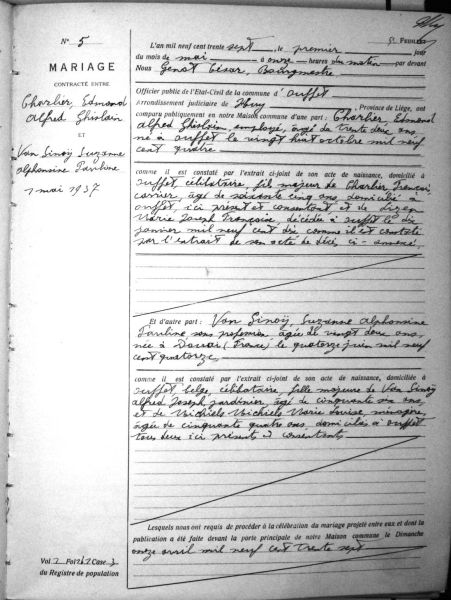 N° 5
MARIAGE
CONTRACTÉ ENTRE
Charlier, Edmond
Alfred Ghislain
ET
Van Sinoÿ Suzanne
Alphonsine Pauline
1 mai 1937
Vol. 2 Fol 262 Case 3
du Registre de population
FEUILLET
L'an mil neuf cent trente sept, le premier jour
du mois de mai à onze heures du matin par devant
Nous Genot César, Bourgmestre
Officier public de l'Etat-Civil de la commune d'Ouffet
arrondissement judiciaire de Huy, Province de Liége, ont
comparu publiquement en notre Maison commune d'une part : Charlier, Edmond
Alfred Ghislain, employé, âgé de trente deux ans
né à Ouffet le vingt huit octobre mil neuf
cent quatre
comme il est constaté par l'extrait ci-joint de son acte de naissance, domicilié à
Ouffet, célibataire, fils majeur de Charlier François
carrier, âgé de soixante cinq ans, domicilié à
Ouffet, ici présent et consentant et de
Marie Joseph Françoise décédée à Ouffet le dix
janvier mil neuf cent dix comme il est constaté
par l'extrait de son acte de décès, ci-annexé.
Et d'autre part : Van Sinoÿ Suzanne Alphonsine
Pauline sans profession âgée de vingt deux ans
née à Douai (France) le quatorze juin mil neuf
cent quatorze
comme il est constaté par l'extrait ci-joint de son acte de naissance, domiciliée à
Ouffet belge, célibataire, fille majeure de Van Sinoÿ
Alfred Joseph jardinier, âgé de cinquante six ans
et de Michiels Marie Louise, ménagère,
âgée de cinquante quatre ans, domiciliés à Ouffet
tous deux ici présents et consentants
Lesquels nous ont requis de procéder à la célébration du mariage projeté entre eux et dont la
publication a été faite devant la porte principale de notre Maison commune le Dimanche
onze avril mil neuf cent trente sept